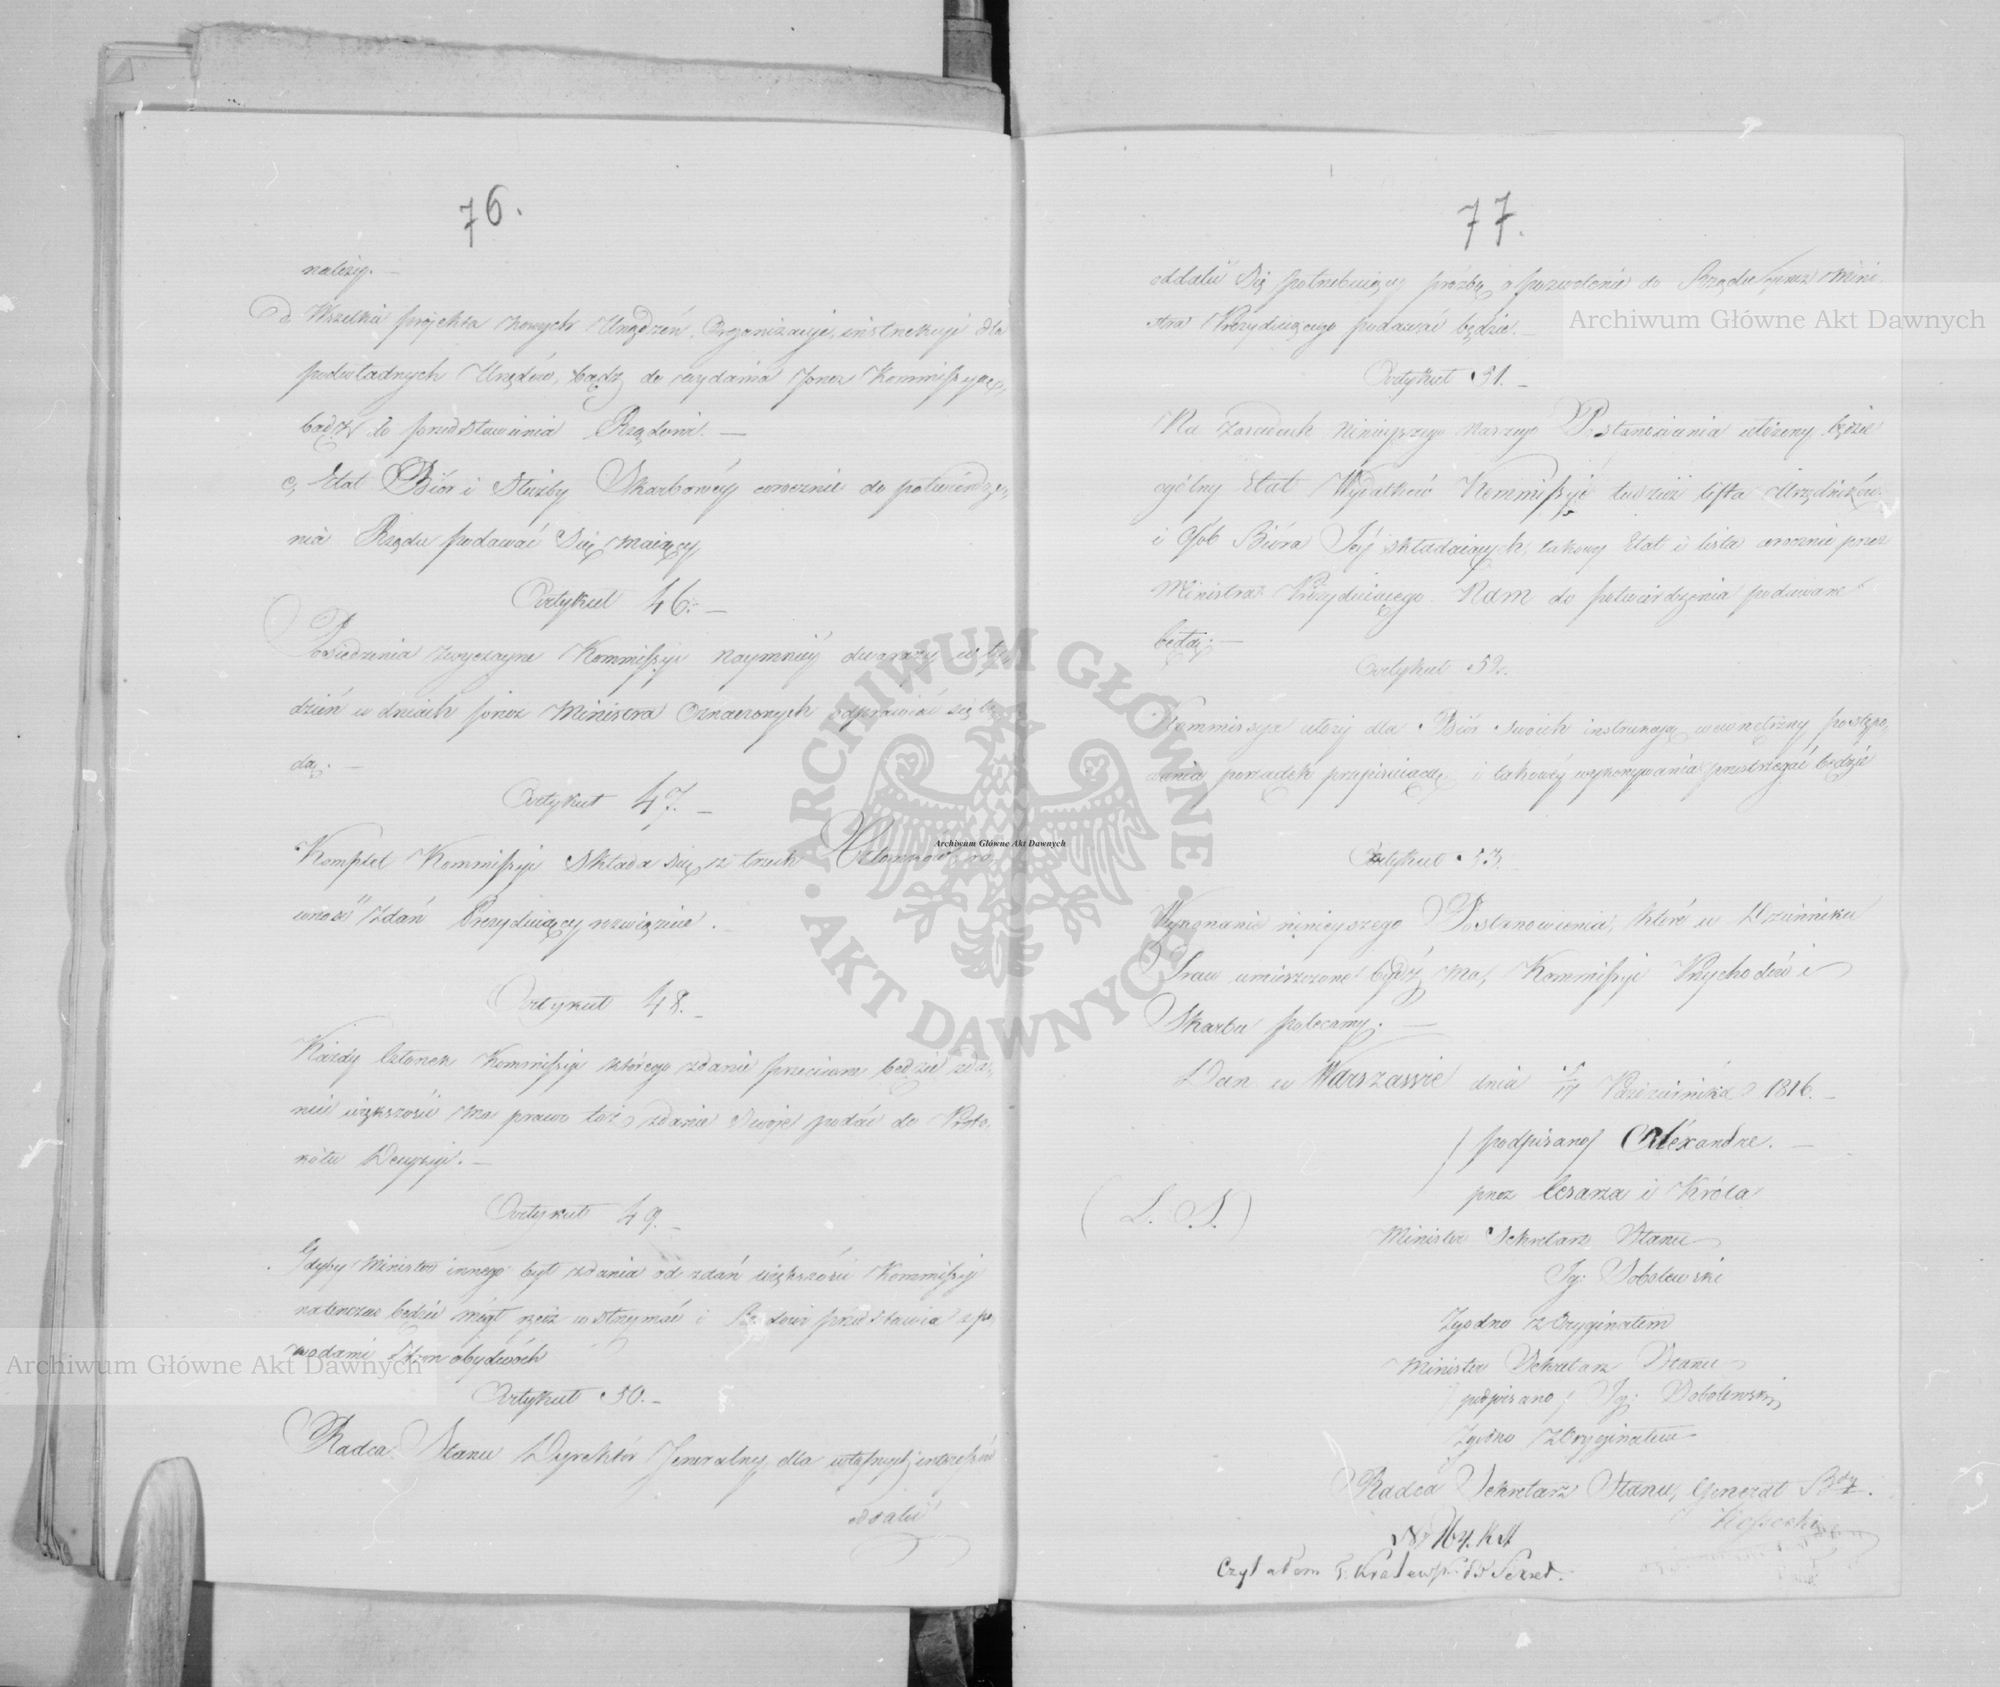 76.
należą. —
d, Wszelkie projekta nowych Urządzeń, Organizacyje, instrukcyje dla
podwładnych Urzędów, bądź do wydania przez Kommissyę,
bądź do przedstawienia Rządowi. —
e, Etat Biór i Służby Skarbowéy corocznie do potwierdze-
nia Rządu podawać się maiący
Artykuł 46. —
Posiedzenia zwyczayne Kommissyi naymniéy dwa razy w ty-
dzień w dniach przez Ministra Oznaczonych odprawiać się bę-
dą. —
Artykuł 47. —
Komplet Kommissyi składa się z trzech Członków, ró-
wność zdań Prezyduiący rozwiązuie.
Artykuł 48. —
Każdy Członek Kommissyi którego zdanie przeciwne będzie zda-
niu większości ma prawo toż zdanie swoje podać do Proto-
kółu Decyzyi. —
Artykuł 49. —
Gdyby Minister innego był zdania od zdań większości Kommissyi
natenczas będzie mógł rzecz wstrzymać i Rządowi przedstawia z po-
wodami Stron obydwóch
Artykuł 50. —
Radca Stanu Dyrektór Jeneralny dla własnych interessów
oddalić
77.
oddalić się potrzebuiący prośbę o pozwolenie do Rządu przez Mini-
stra Prezyduiącego podawać będzie. —
Artykuł 51. —
Na zasadach ninieyszego naszego Postanowienia ułożony będzie
ogólny Etat Wydatków Kommissyi tudzież lista Urzędników
i Osób Bióra Jéy składaiących, takowy Etat i lista corocznie przez
Ministra Prezyduiącego Nam do potwierdzenia podawane
będą. —
Artykuł 52.
Kommissya ułoży dla Biór swoich instrukcyą wewnętrzny postępo-
wania porządek przepisuiącą i takowéy wykonywania przestrzegać będzie
Artykuł 53.
Wykonanie ninieyszego Postanowienia, które w Dzienniku
Praw umieszczone bydź ma, Kommissyi Przychodów i
Skarbu polecamy. —
Dan w Warszawie dnia 5/17 Października 1816. —
/podpisano/ Alexandre. —
przez Cesarza i Króla
(L. S.)
Minister Sekretarz Stanu
Ig: Sobolewski
Zgodno z Oryginałem
Minister Sekretarz Stanu
/podpisano/ Ig: Sobolewski
Zgodno z Oryginałem
Radca Sekretarz Stanu, Generał Bdy.
Kossecki
Czytałem
Archiwum Główne Akt Dawnych
Archiwum Główne Akt Dawnych
Archiwum Główne Akt Dawnych
ARCHIWUM GŁÓWNE · AKT DAWNYCH ·